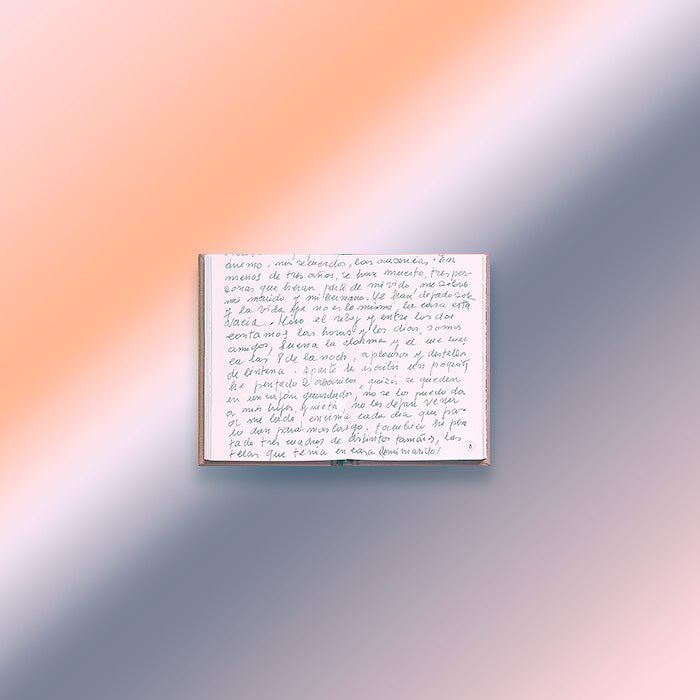 ánimo, mis recuerdos, las ausencias. En
menos de tres años, se han muerto, tres per-
sonas que heran parte de mi vida, me
mi marido y mi hermano. Me han dejado sola
y la vida ya no es lo mismo, la casa esta
vacia. Miro el reloj y entre los dos
contamos las horas y los dias, somos
amigos, suena la alarma y el me
en las 8 de la noch, aplausos y
de lintena. Aparte de un poquito
he pintado 2 abanicos, quizá se queden
en un cajón guardados, no se los puedo da
a mis hijos, y nieta, no les dejan venir
a mi lado, encima cada dia que pas-
lo dan para mas largo. tambien he pin
tado tres cuadros de distintos tamaños, las
telas que tenia en casa